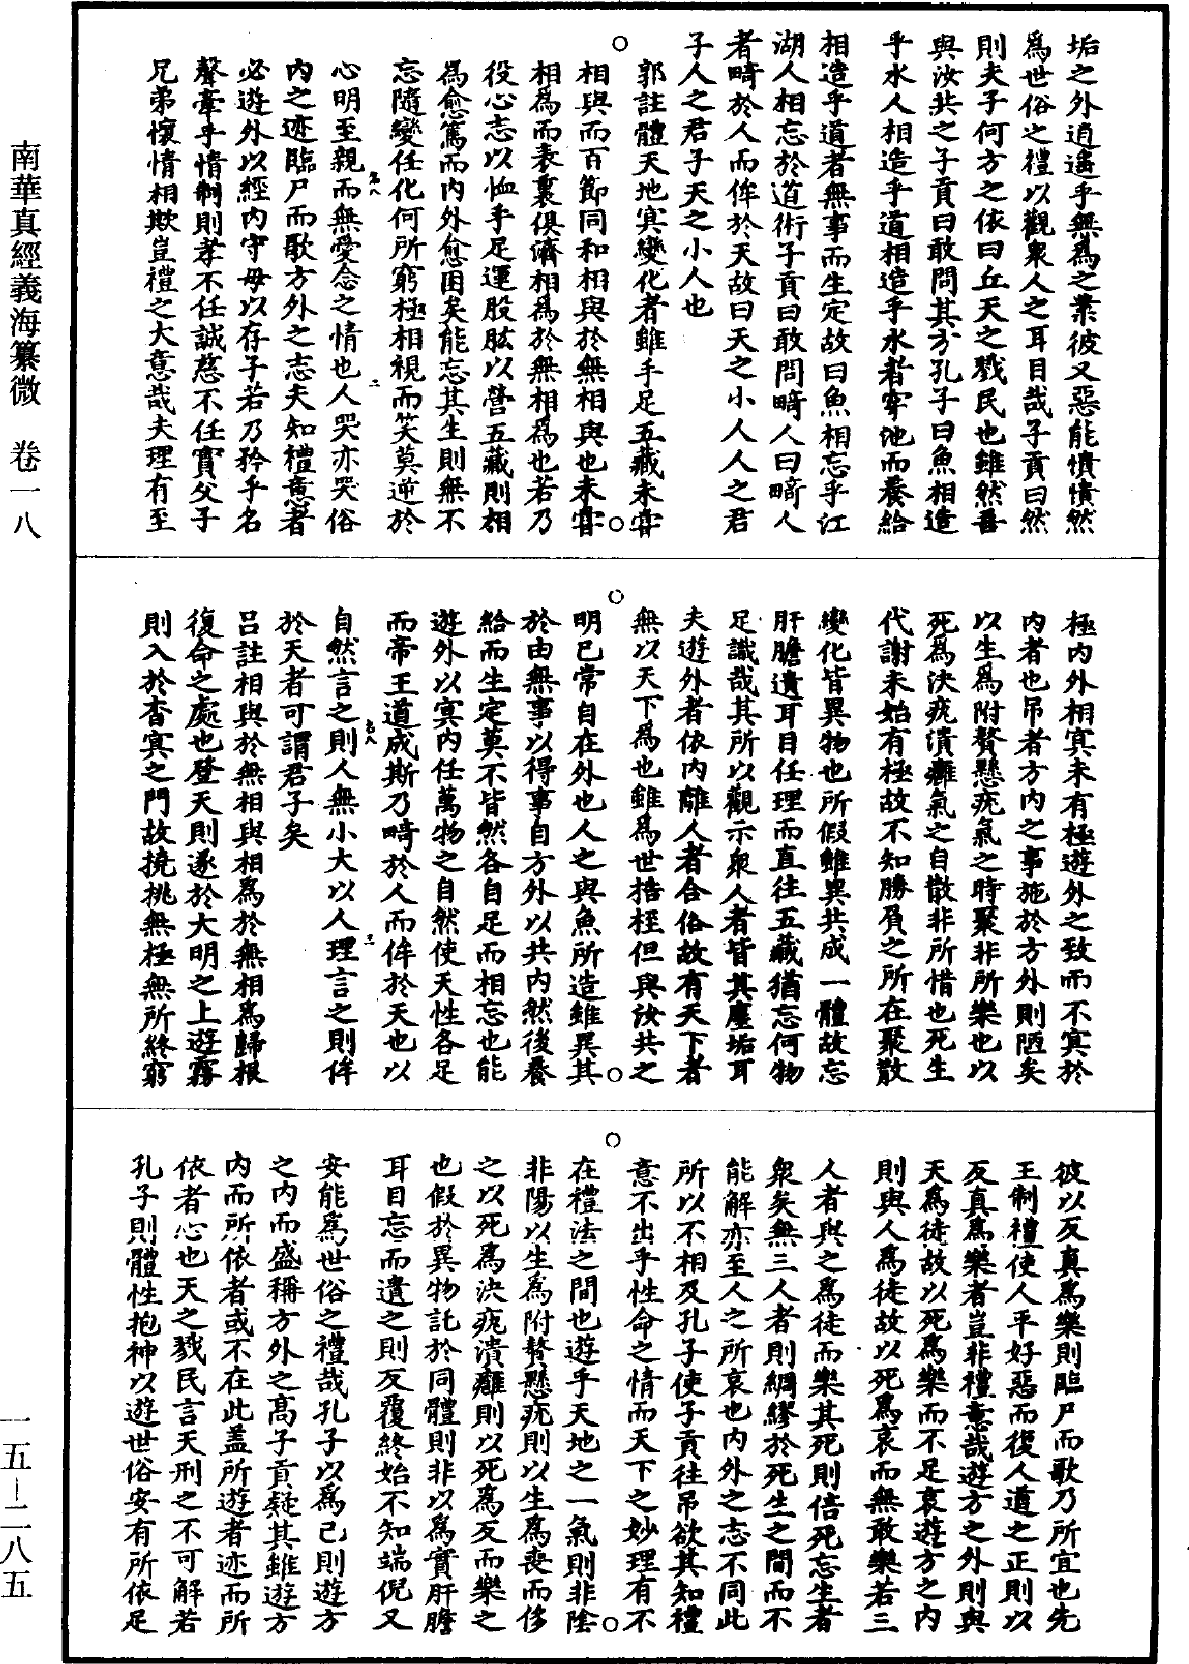 南華真經義海纂微　卷一八
垢之外逍遥乎無爲之業彼又惡能憒憒然
爲世俗之禮以觀衆人之耳目哉子貢曰然
則夫子何方之依曰丘天之戮民也雖然吾
與汝共之子貢曰敢問其方孔子曰魚相造
乎水人相造乎道相造乎水者穿池而養給
相造乎道者無事而生定故曰魚相忘乎江
湖人相忘於道術子貢曰敢問畸人曰畸人
者畸於人而侔於天故曰天之小人人之君
子人之君子天之小人也
郭註體天地冥變化者雖手足五藏未甞
相與而百節同和相與於無相與也未甞
相爲而表裏俱濟相爲於無相爲也若乃
役心志以恤手足運股肱以營五藏則相
爲愈篤而内外愈困矣能忘其生則無不
忘隨變任化何所窮極相視而笑莫逆於
心明至親而無愛念之情也人哭亦哭俗
内之迹臨尸而歌方外之志夫知禮意者
必遊外以經内守母以存子若乃矜乎名
聲牽乎情制則孝不任誠慈不任實父子
兄弟懷情相欺豈禮之大意哉夫理有至
極内外相冥未有極遊外之致而不冥於
内者也吊者方内之事施於方外則陋矣
以生爲附贅懸疣氣之時聚非所樂也以
死爲決疣潰癰氣之自散非所惜也死生
代謝未始有極故不知勝負之所在聚散
變化皆異物也所假雖異共成一體故忘
肝膽遺耳目任理而直往五藏猶忘何物
足識哉其所以觀示衆人者皆其塵垢耳
夫遊外者依内離人者合俗故有天下者
無以天下爲也雖爲世捁桎但與汝共之
明已常自在外也人之與魚所造雖異其
於由無事以得事自方外以共内然後養
給而生定莫不皆然各自足而相忘也能
遊外以冥内任萬物之自然使天性各足
而帝王道成斯乃畸於人而侔於天也以
自然言之則人無小大以人理言之則侔
於天者可謂君子矣
吕註相與於無相與相爲於無相爲歸根
復命之處也登天則遂於大明之上遊霧
則入於杳冥之門故撓挑無極無所終窮
彼以反真爲樂則臨尸而歌乃所宜也先
王制禮使人平好惡而復人道之正則以
反真爲樂者豈非禮意哉遊方之外則與
天爲徒故以死爲樂而不足哀遊方之内
則與人爲徒故以死爲哀而無敢樂若三
人者與之爲徒而樂其死則倍死忘生者
衆矣無三人者則綢繆於死生之間而不
能解亦至人之所哀也内外之志不同此
所以不相及孔子使子貢往吊欲其知禮
意不出乎性命之情而天下之妙理有不
在禮法之間也遊乎天地之一氣則非陰
非陽以生爲附贅懸疣則以生爲喪而侈
之以死爲決疣潰癰則以死爲反而樂之
也假於異物託於同體則非以爲實肝膽
耳目忘而遺之則反覆終始不知端倪又
安能爲世俗之禮哉孔子以爲己則遊方
之内而盛稱方外之高子貢疑其雖遊方
内而所依者或不在此盖所遊者迹而所
依者心也天之戮民言天刑之不可解若
孔子則體性抱神以遊世俗安有所依足
一五-二八五